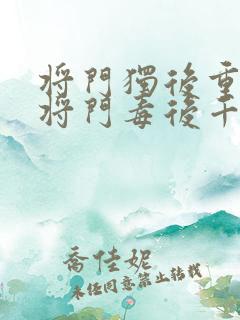 將門獨後重
將門毒後千
喬佳妮
未經同意禁止轉載